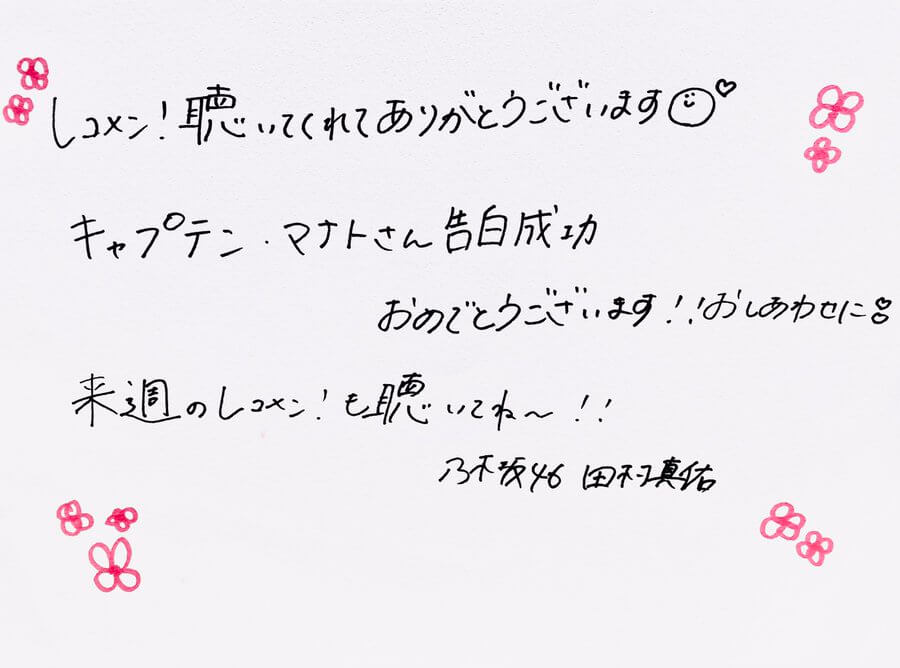 レコメン!聴いてくれてありがとうございます
キャプテン・マナトさん告白成功
おめでとうございます!!おしあわせに
来週のレコメン!も聴いてね〜!!
乃木坂46 田村真佑